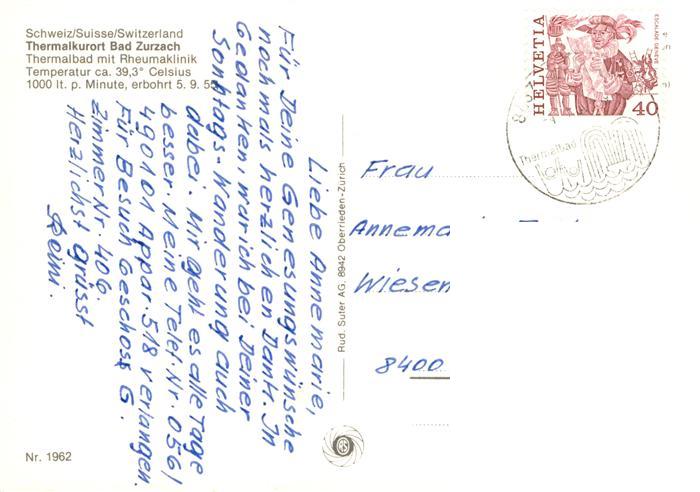 Schweiz/Suisse/Switzerland
Thermalkurort Bad Zurzach
Thermalbad mit Rheumaklinik
Temperatur ca. 39,3° Celsius
1000 lt. p. Minute, erbohrt 5. 9. 55
Liebe Annemarie,
Für Deine Genesungswünsche
nochmals herzlichen Dank. In
Gedanken, war ich bei Deiner
Sonntags-Wanderung auch
dabei. Mir geht es alle Tage
besser. Meine Telef. Nr. 056/
490101 Appar. 518 verlangen.
Für Besuch Geschoss G.
Zimmer Nr. 406.
Herzlichst grüsst
Rud. Suter AG, 8942 Oberrieden-Zürich
Frau
Annema
Wiesen
8400
HELVETIA
ESCALADE GENÈVE
40
Thermalbad
Nr. 1962